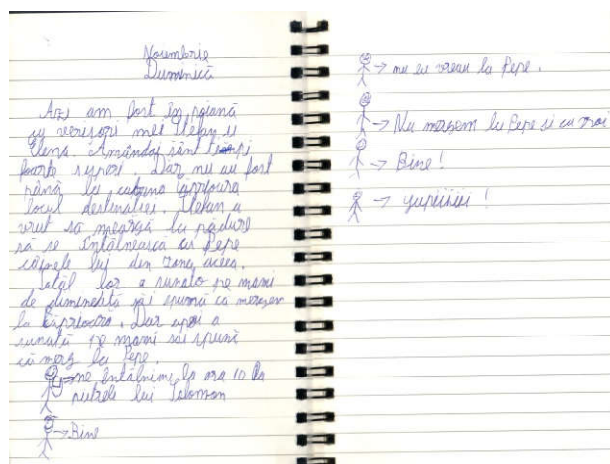 Noiembrie
Duminică
Azi am fost în poiană
cu verișorii mei Ștefan și
Elena. Amândoi sânt
foarte superi. Dar nu au fost
până la cabana Căprioara
locul destinatiei. Ștefan a
vrut să meargă la pădure
să se întâlnească cu Pepe
câinele lui din zona aceea.
Tatăl lor a sunato pe mami
de dimineată săi spună ca mergem
la Căprioara. Dar apoi a
sunato pe mami săi spună
că merg la Pepe.
→ ne întâlnim la ora 10 la
pietrele lui Solomon
→ Bine
→ nu eu vreau la Pepe.
→ Nu mergem la Pepe si cu voi
→ Bine!
→ yupiiiiii!